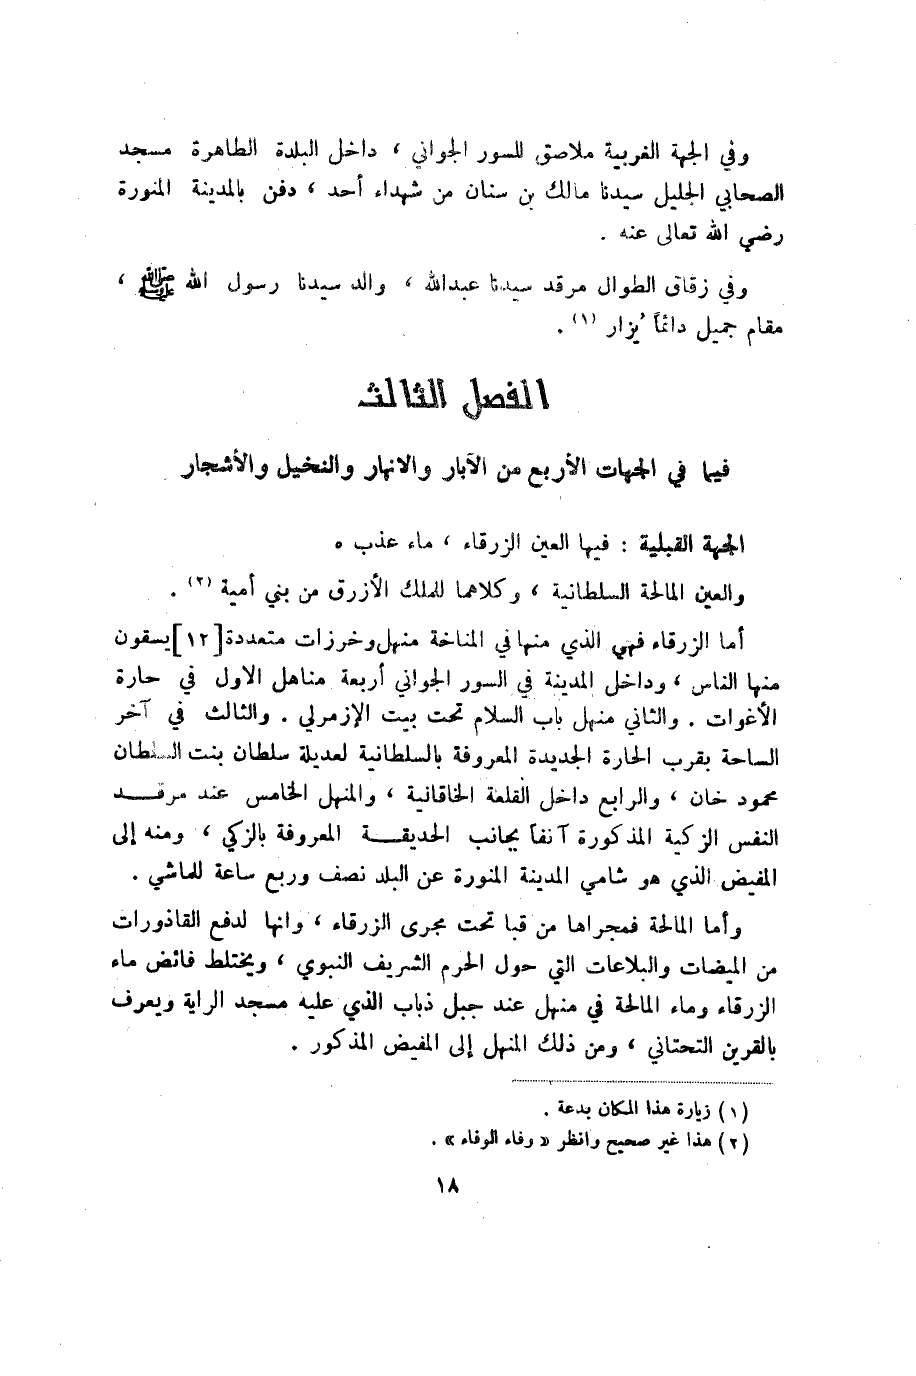 وفي الجهة الغربية ملاصق للسور الجواني ، داخل البلدة الطاهرة مسجد
الصحابي الجليل سيدنا مالك بن سنان من شهداء أحد ، دفن بالمدينة المنورة
رضي الله تعالى عنه .
وفي زقاق الطوال مرقد سيدنا عبدالله ، والد سيدنا رسول الله ﷺ ،
مقام جميل دائماً يُزار (١) .
الفصل الثالث
فيما في الجهات الأربع من الآبار والانهار والنخيل والأشجار
الجهة القبلية : فيها العين الزرقاء ، ماء عذب ه
والعين المالحة السلطانية ، وكلاهما للملك الأزرق من بني أمية (٢) .
أما الزرقاء فهي الذي منها في المناخة منهل وخرزات متعددة [١٢] يسقون
منها الناس ، وداخل المدينة في السور الجواني أربعة مناهل الاول في حارة
الأغوات . والثاني منهل باب السلام تحت بيت الإزمرلي . والثالث في آخر
الساحة بقرب الحارة الجديدة المعروفة بالسلطانية لعديلة سلطان بنت السلطان
محمود خان ، والرابع داخل القلعة الخاقانية ، والمنهل الخامس عند مرقد
النفس الزكية المذكورة آنفاً بجانب الحديقة المعروفة بالزكي ، ومنه إلى
المفيض الذي هو شامي المدينة المنورة عن البلد نصف وربع ساعة للماشي .
وأما المالحة فمجراها من قبا تحت مجرى الزرقاء ، وانها لدفع القاذورات
من الميضات والبلاعات التي حول الحرم الشريف النبوي ، ويختلط فائض ماء
الزرقاء وماء المالحة في منهل عند جبل ذباب الذي عليه مسجد الراية ويعرف
بالقرين التحتاني ، ومن ذلك المنهل إلى المفيض المذكور .
(١) زيارة هذا المكان بدعة .
(٢) هذا غير صحيح وانظر « وفاء الوفاء » .
١٨